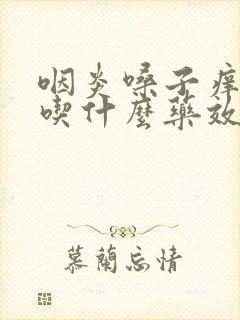 咽炎嗓子痒
喫什麼藥效
慕蘭忘情